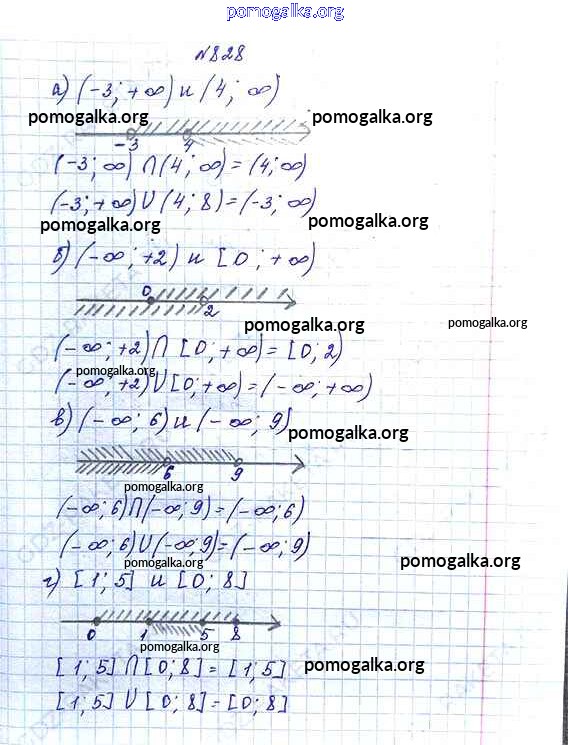 pomogalka.org
№828
а) (-3; +∞) и (4; ∞)
pomogalka.org pomogalka.org
-3 4
(-3; ∞) ∩ (4; ∞) = (4; ∞)
(-3; +∞) ∪ (4; 8) = (-3; ∞)
pomogalka.org pomogalka.org
б) (-∞; +2) и [0; +∞)
0 2
pomogalka.org pomogalka.org
(-∞; +2) ∩ [0; +∞) = [0; 2)
pomogalka.org
(-∞; +2) ∪ [0; +∞) = (-∞; +∞)
в) (-∞; 6) и (-∞; 9)
pomogalka.org
6 9
pomogalka.org
(-∞; 6) ∩ (-∞; 9) = (-∞; 6)
(-∞; 6) ∪ (-∞; 9) = (-∞; 9)
pomogalka.org pomogalka.org
г) [1; 5] и [0; 8]
0 1 5 8
pomogalka.org
[1; 5] ∩ [0; 8] = [1; 5]
pomogalka.org
[1; 5] ∪ [0; 8] = [0; 8]